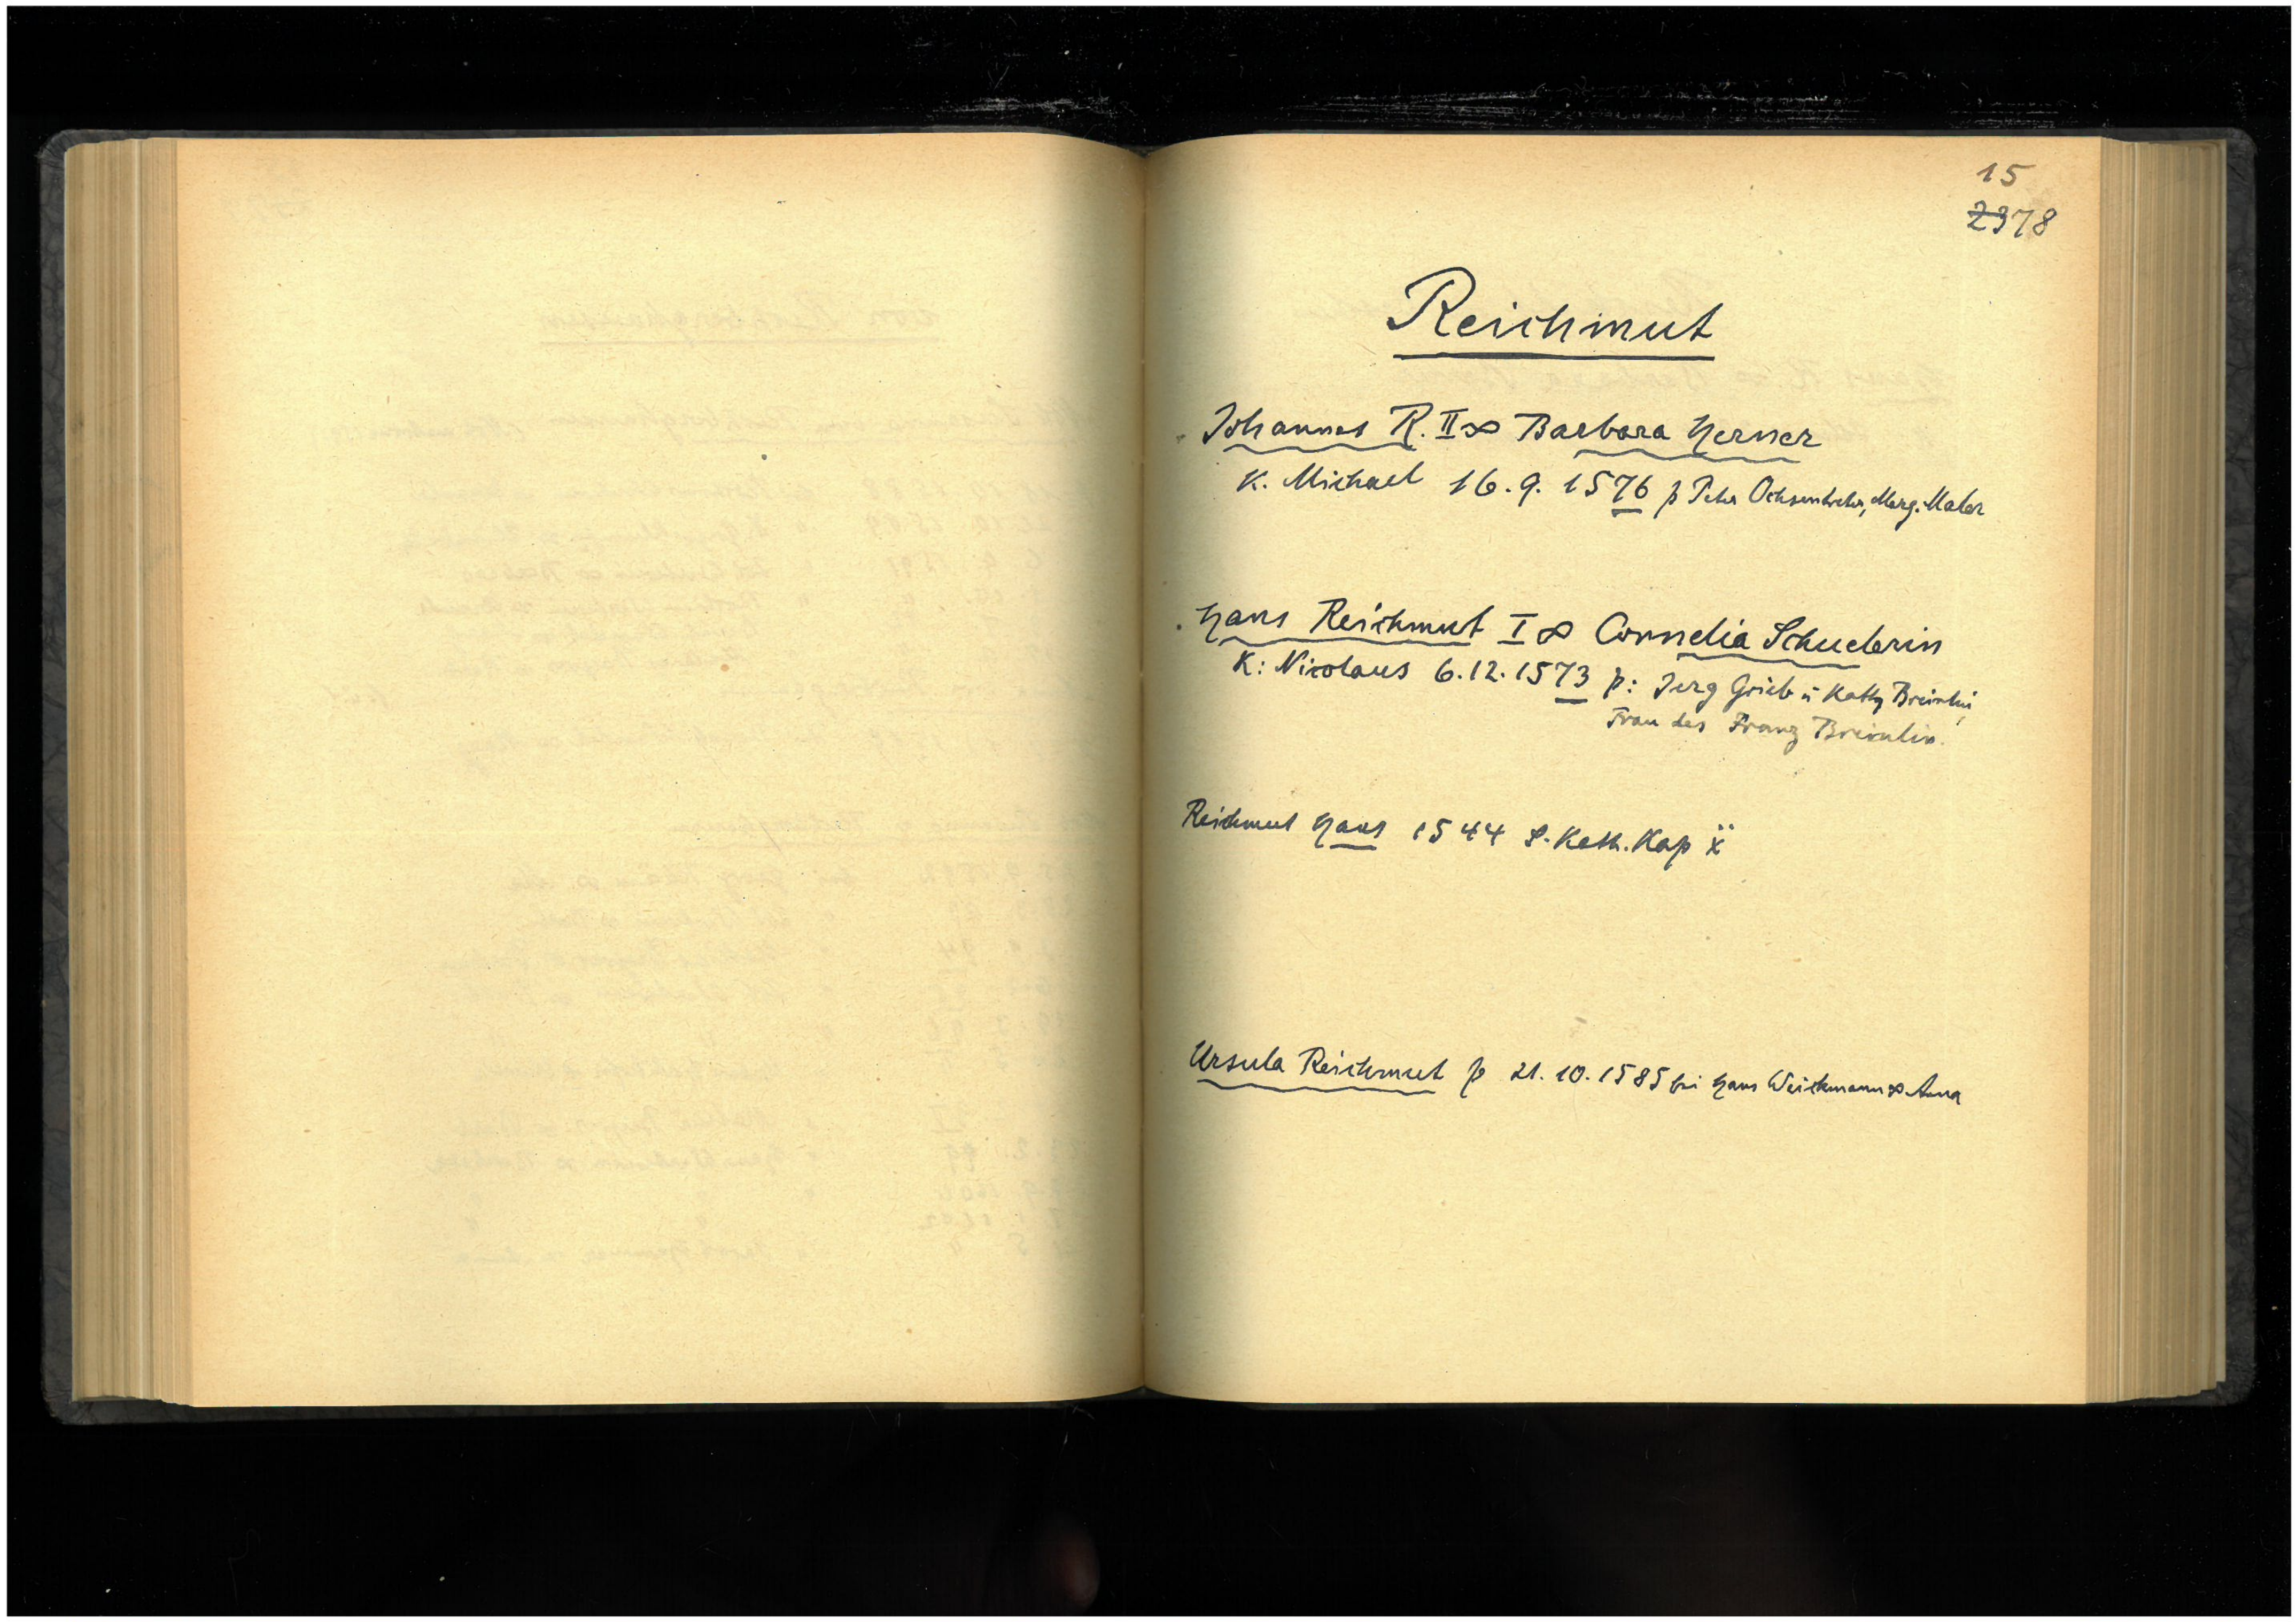 15
2378
Reichmut
Johannes R. II ∞ Barbara Herner
K. Michael 16.9.1576 p Peter Ochsentreter, Marg. Maler
Hans Reichmut I ∞ Cornelia Schuderin
K: Nicolaus 6.12.1573 p: Jerg Grieb u Kathy Breinlin,
Frau des Franz Breinlin.
Reichmut Hans 1544 S. Kath. Kap
Ursula Reichmut p 21.10.1585 bei Hans Weickmann ∞ Anna